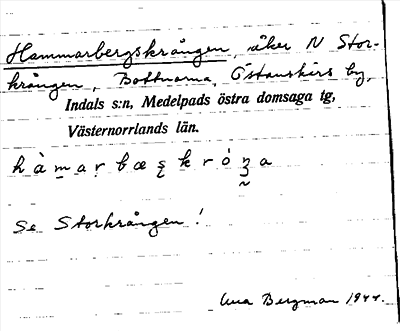 Hammarbergskrången, åker N Stor-
krången, Bottnarna, Östanskärs by,
Indals s:n, Medelpads östra domsaga tg,
Västernorrlands län.
Se Storkrången!
Bergman 1944.